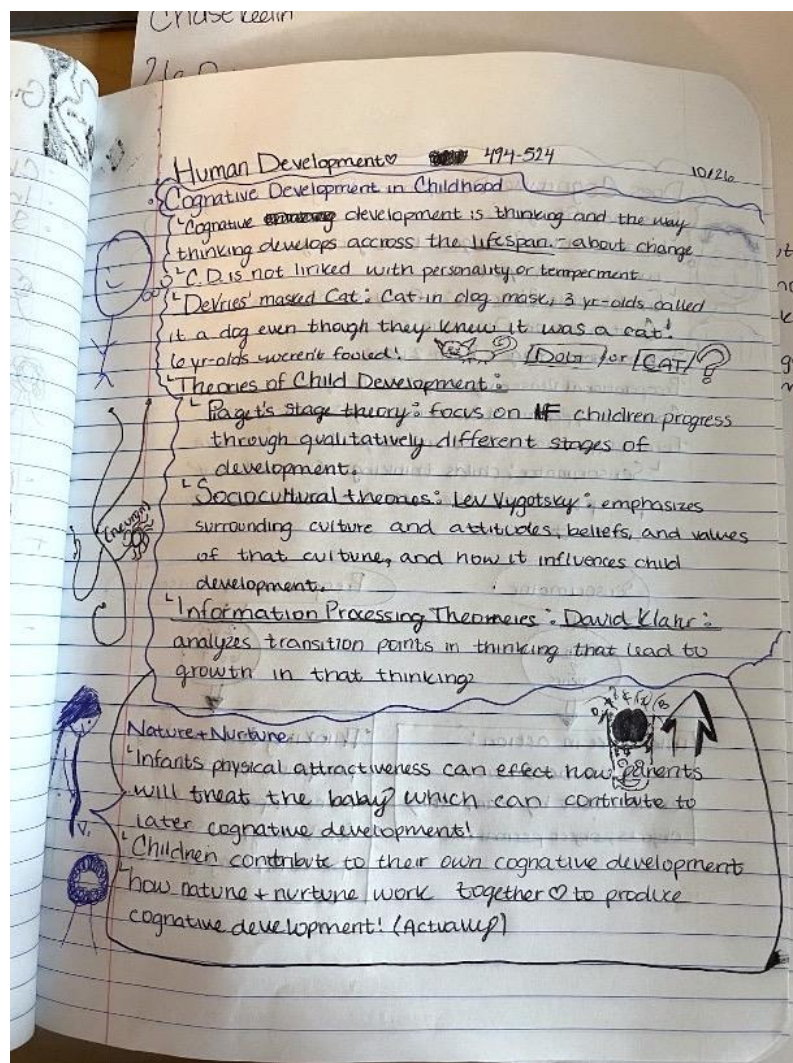 Chase Keelin
Human Development♡ 494-524 10/26
Cognative Development in Childhood
Cognative development is thinking and the way
thinking develops accross the lifespan. - about change
C.D. is not linked with personality or temperment
DeVries' masked Cat: Cat in dog mask, 3 yr-olds called
it a dog even though they knew it was a cat!
6 yr-olds weren't fooled! DOG or CAT?
Theories of Child Development:
Piaget's stage theory: focus on children progress
through qualitatively different stages of
development.
Sociocultural theories: Lev Vygotsky: emphasizes
surrounding culture and attitudes, beliefs, and values
of that culture, and how it influences child
development.
(neuron)
Information Processing Theomeies: David Klahr:
analyzes transition points in thinking that lead to
growth in that thinking?
Nature + Nurture
Infants physical attractiveness can effect how parents
will treat the baby? which can contribute to
later cognative development!
Children contribute to their own cognative development
how nature + nurture work together♡ to produce
cognative development! (Actually)